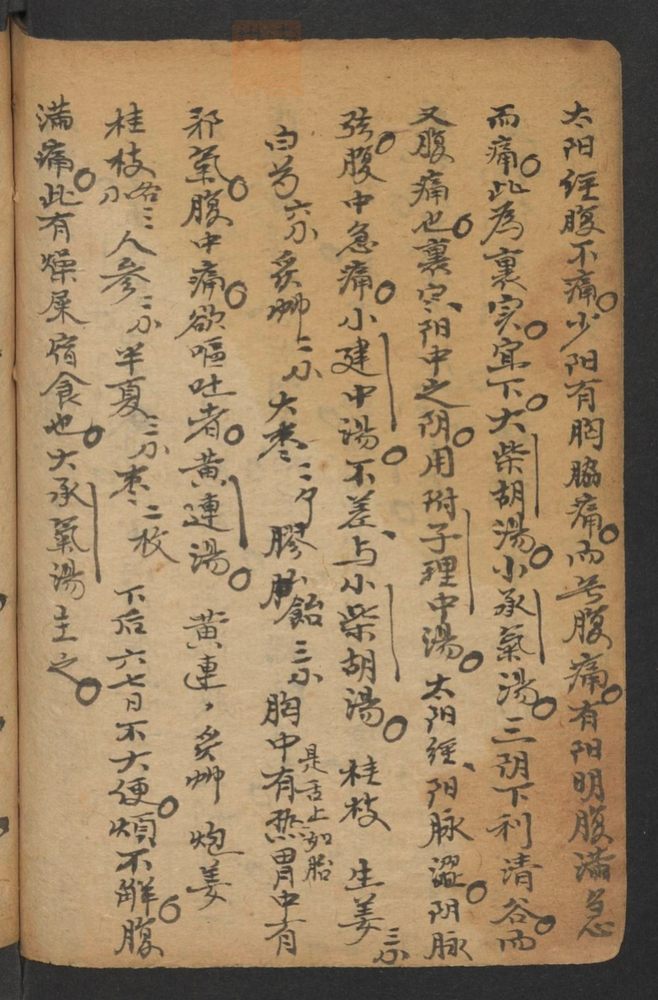 太阳经腹不痛少阳有胸胁痛而无腹痛有阳明腹满急
而痛此为裏实宜下大柴胡汤小承氣汤三阴下利清谷而
又腹痛也裏寒阳中之阴用附子理中汤太阳经阳脉澀阴脉
弦腹中急痛小建中汤不差与小柴胡汤 桂枝 生姜三分
白芍六分 炙草二分 大枣 膠飴三分 胸中有热胃中有
是舌上如胎
邪氣腹中痛欲嘔吐者黄連湯 黄連 炙草 炮姜
桂枝各三分 人参二分 半夏三分 枣二枚 下后六七日不大便煩不解腹
满痛此有燥屎宿食也大承氣湯主之